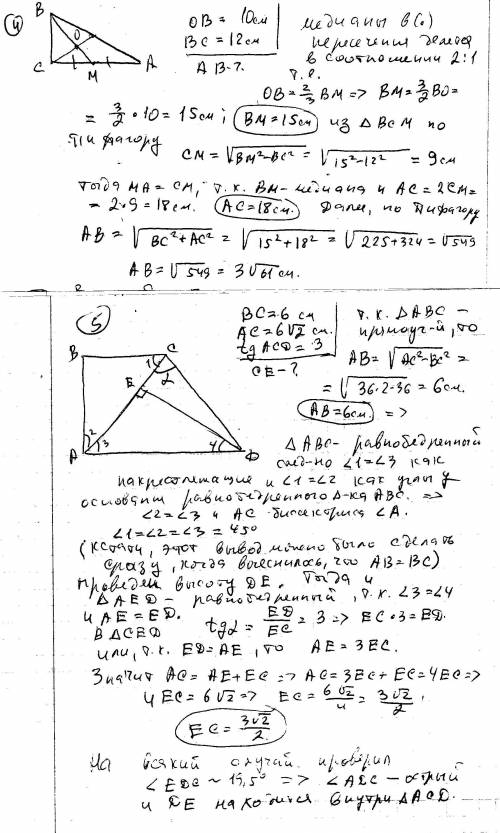 4
B
O
C
M
A
OB = 10см
BC = 12см
AB-?
медианы в (.)
пересечения делятся
в соотношении 2:1
т.е.
OB = 2/3 BM => BM = 3/2 BO =
= 3/2 • 10 = 15см; BM = 15см из △BCM по
Пифагору
CM = √BM²-BC² = √15²-12² = 9см
тогда MA = CM, т.к. BM-медиана и AC = 2CM =
= 2•9 = 18см. AC = 18см. Далее, по Пифагору
AB = √BC²+AC² = √15²+18² = √225+324 = √549
AB = √549 = 3√61 см.
5
B
C
1
α
E
2
3
4
A
D
BC = 6 см
AC = 6√2 см.
tg ACD = 3
CE-?
т.к. △ABC -
прямоуг-й, то
AB = √AC²-BC² =
= √36•2-36 = 6см.
AB = 6см. =>
△ABC- равнобедренный
след-но ∠1=∠3 как
накрестлежащие и ∠1=∠2 как углы у
основания равнобедренного △-ка ABC. =>
∠2=∠3 и AC биссектриса ∠A.
∠1=∠2=∠3=45°
(кстати, этот вывод можно было сделать
сразу, когда выяснилось, что AB=BC)
Проведем высоту DE. Тогда и
△AED - равнобедренный, т.к. ∠3=∠4
и AE=ED.
В △CED tgα = ED/EC = 3 => EC•3=ED.
или, т.к. ED=AE, то AE=3EC.
Значит AC=AE+EC => AC=3EC+EC=4EC =>
4EC=6√2 => EC = 6√2/4 = 3√2/2.
EC = 3√2/2.
На всякий случай проверил
∠EDC ~ 19,5° => ∠ADC - острый
и DE находится внутри △ACD.